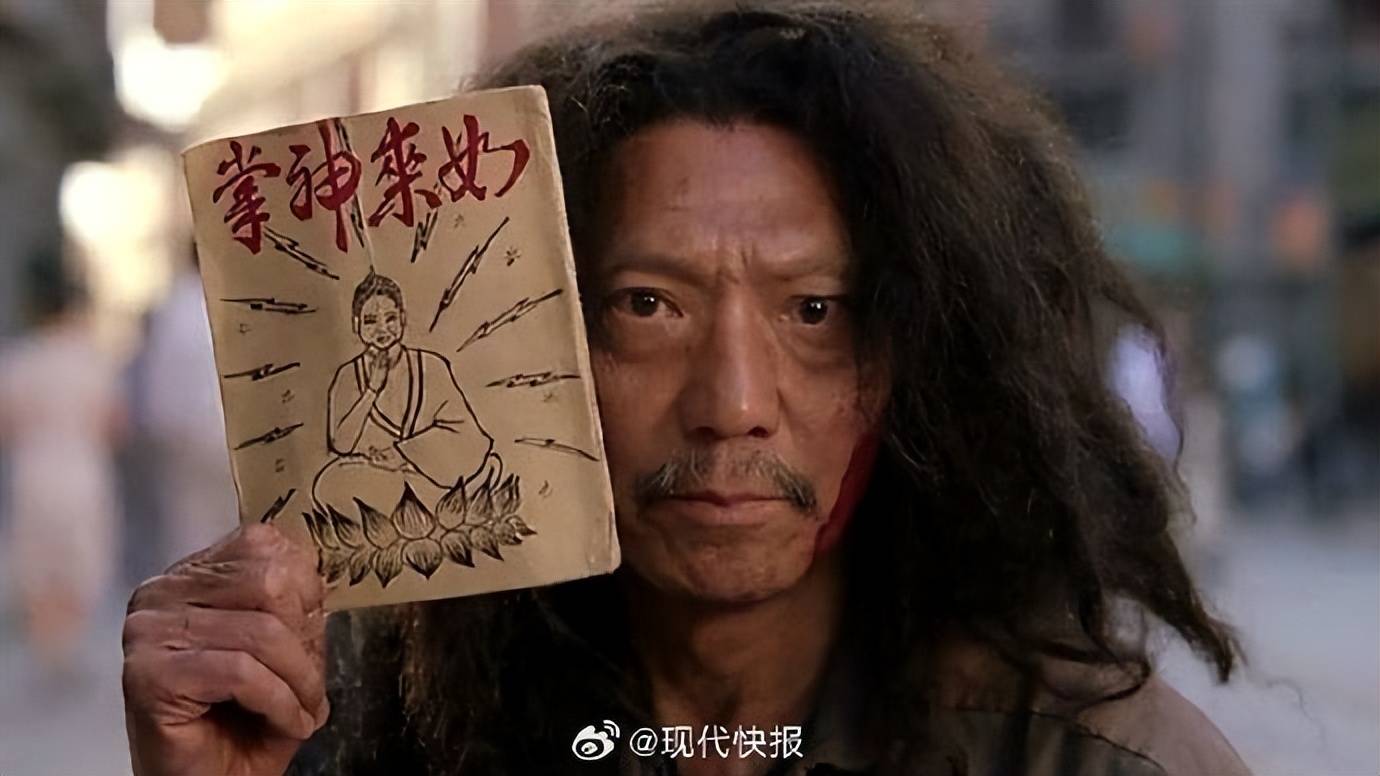 如来神掌
@现代快报